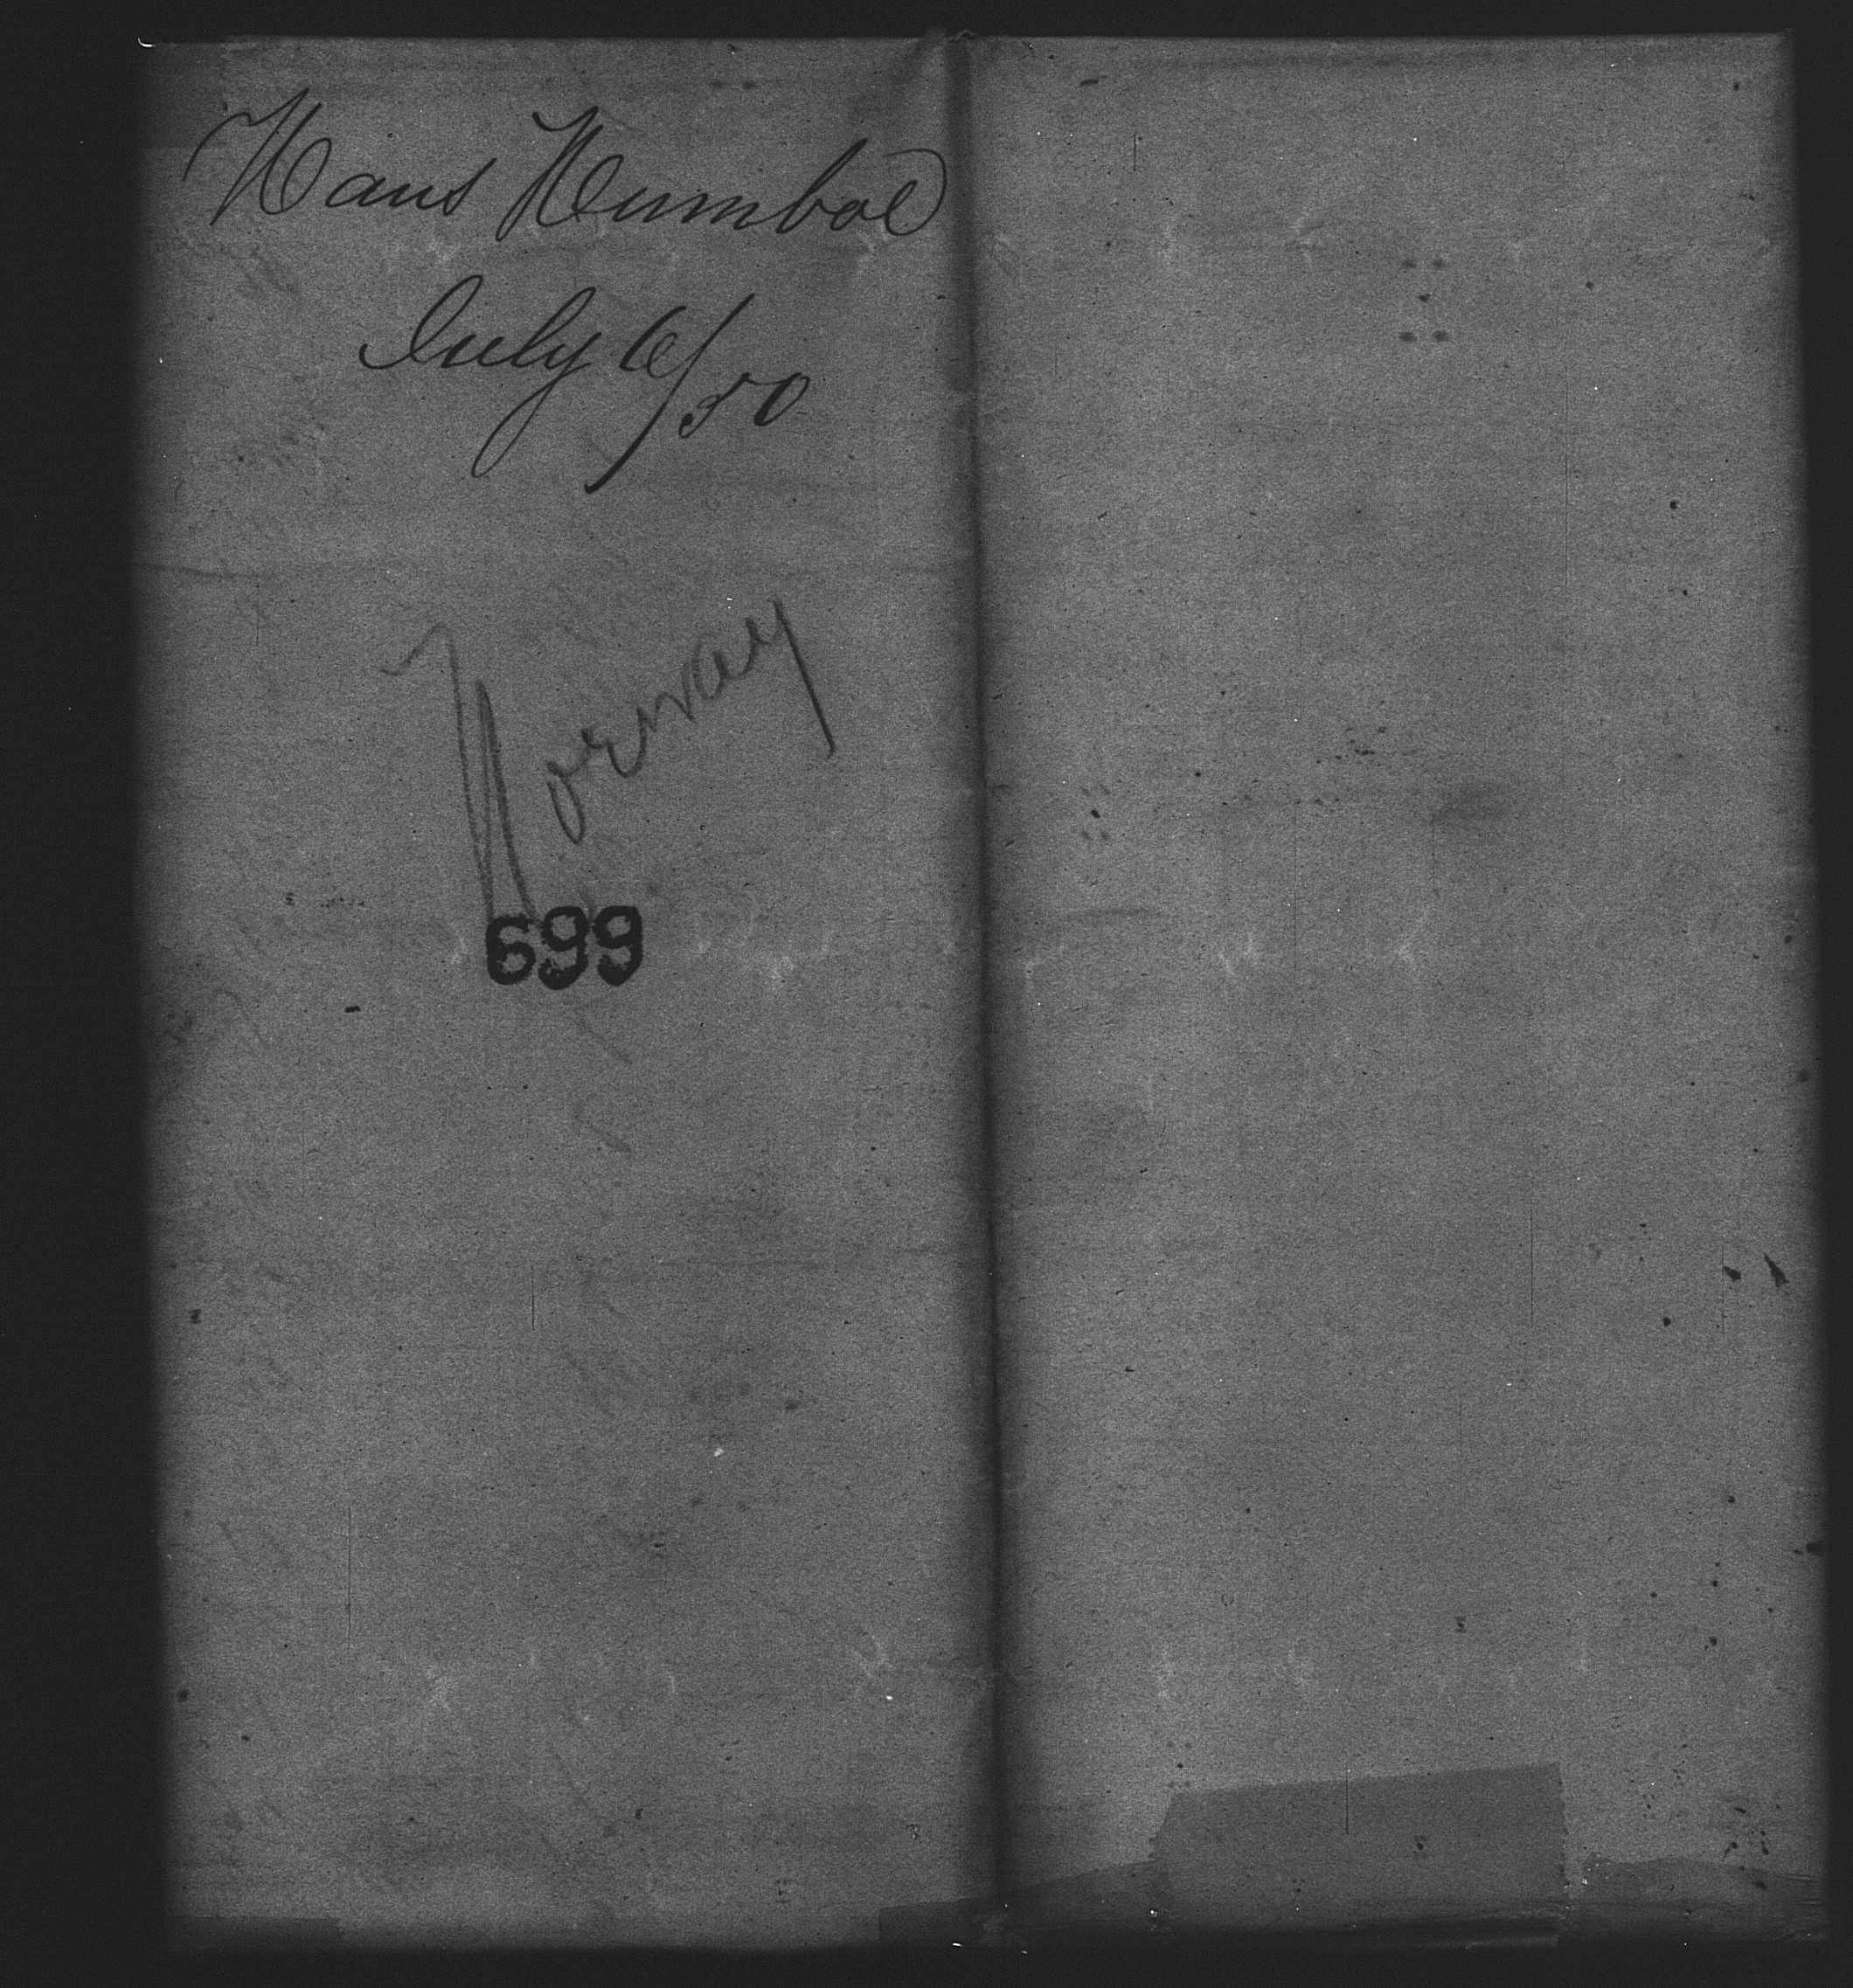 Hans Humboe
July 6/50
Norway
699